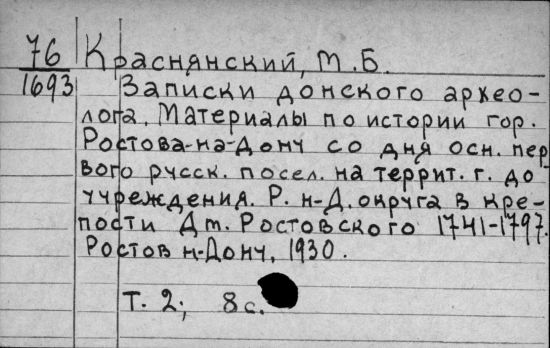 76 Краснянский, М.Б.
1693 Записки донского архео-
лога. Материалы по истории гор.
Ростова-на-Дону со дня осн. пер
вого русск. посел. на террит. г. до
учреждения. Р. н-Д. округа в кре-
пости Дм. Ростовского 1741-1797.
Ростов н-Дону, 1930.
Т. 2; 8 с.